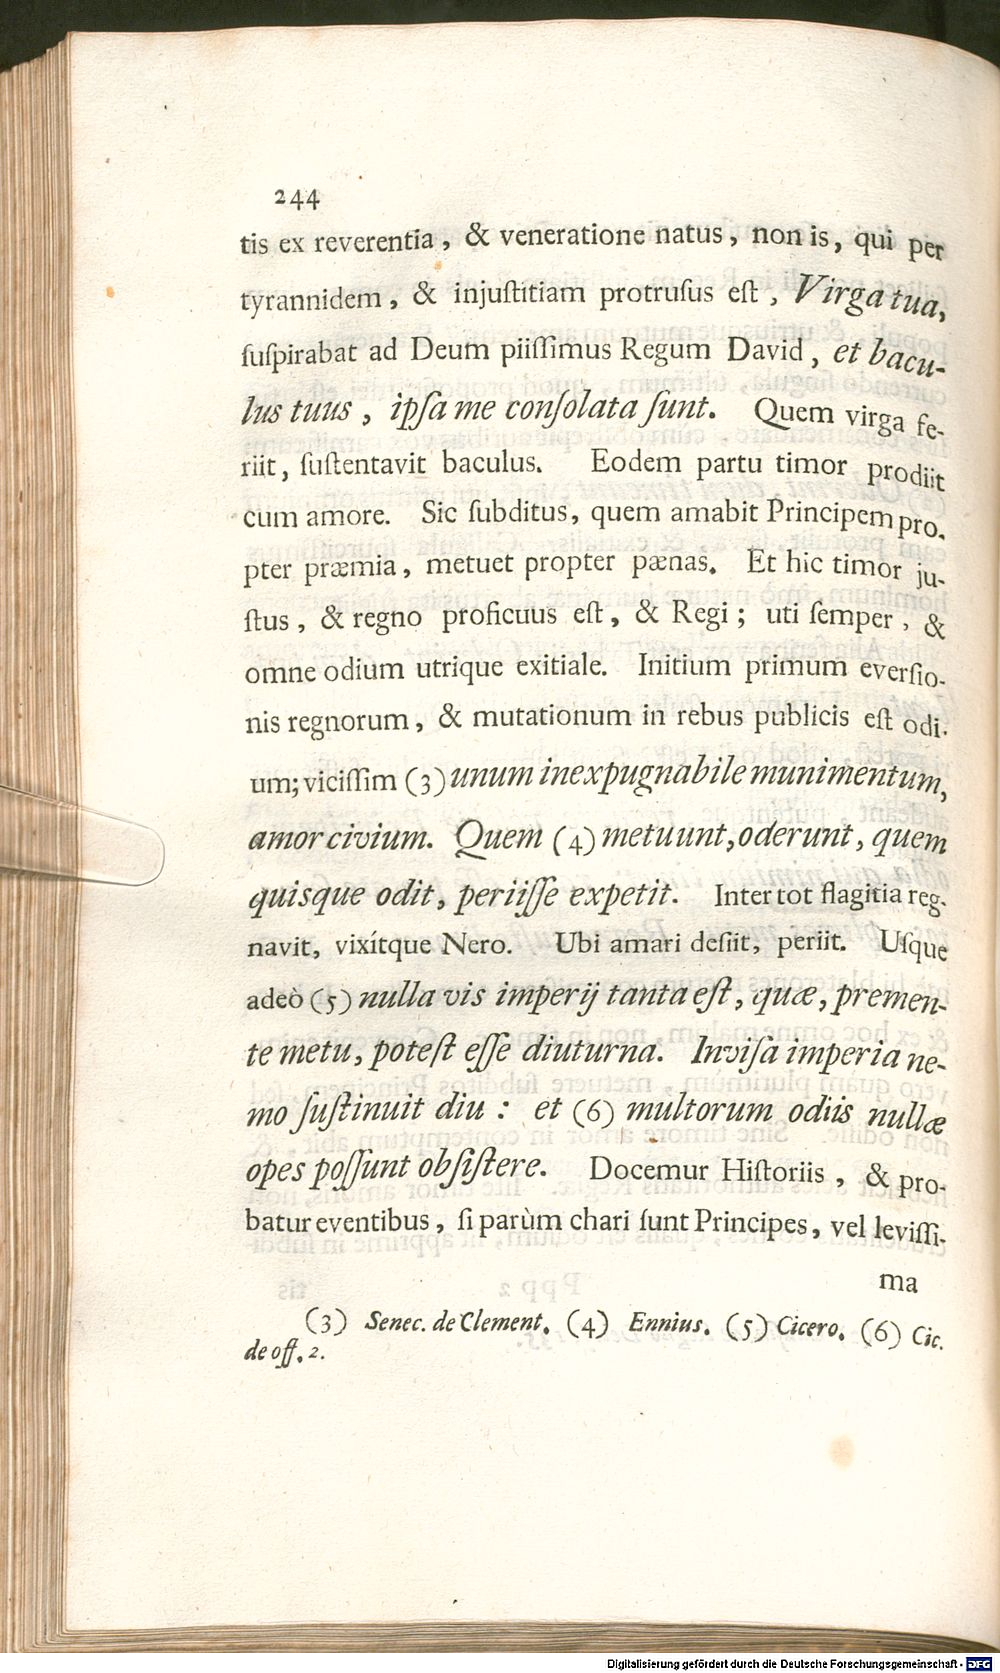 244
tis ex reverentia, & veneratione natus, non is, qui per
tyrannidem, & injuſtitiam protruſus eſt, Virga tua,
ſuſpirabat ad Deum piiſſimus Regum David, et bacu-
lus tuus, ipſa me conſolata ſunt. Quem virga fe-
riit, ſuſtentavit baculus. Eodem partu timor prodiit
cum amore. Sic ſubditus, quem amabit Principem pro-
pter præmia, metuet propter pænas. Et hic timor ju-
ſtus, & regno proficuus eſt, & Regi; uti ſemper, &
omne odium utrique exitiale. Initium primum everſio-
nis regnorum, & mutationum in rebus publicis eſt odi-
um; viciſſim (3) unum inexpugnabile munimentum,
amor civium. Quem (4) metuunt, oderunt, quem
quisque odit, periiſſe expetit. Inter tot flagitia reg-
navit, vixítque Nero. Ubi amari deſiit, periit. Uſque
adeò (5) nulla vis imperij tanta eſt, quæ, premen-
te metu, poteſt eſſe diuturna. Inviſa imperia ne-
mo ſuſtinuit diu : et (6) multorum odiis nullæ
opes poſſunt obſiſtere. Docemur Hiſtoriis, & pro-
batur eventibus, ſi parùm chari ſunt Principes, vel leviſſi-
ma
(3) Senec. de Clement. (4) Ennius. (5) Cicero. (6) Cic.
de off. 2.
Digitalisierung gefördert durch die Deutsche Forschungsgemeinschaft - DFG